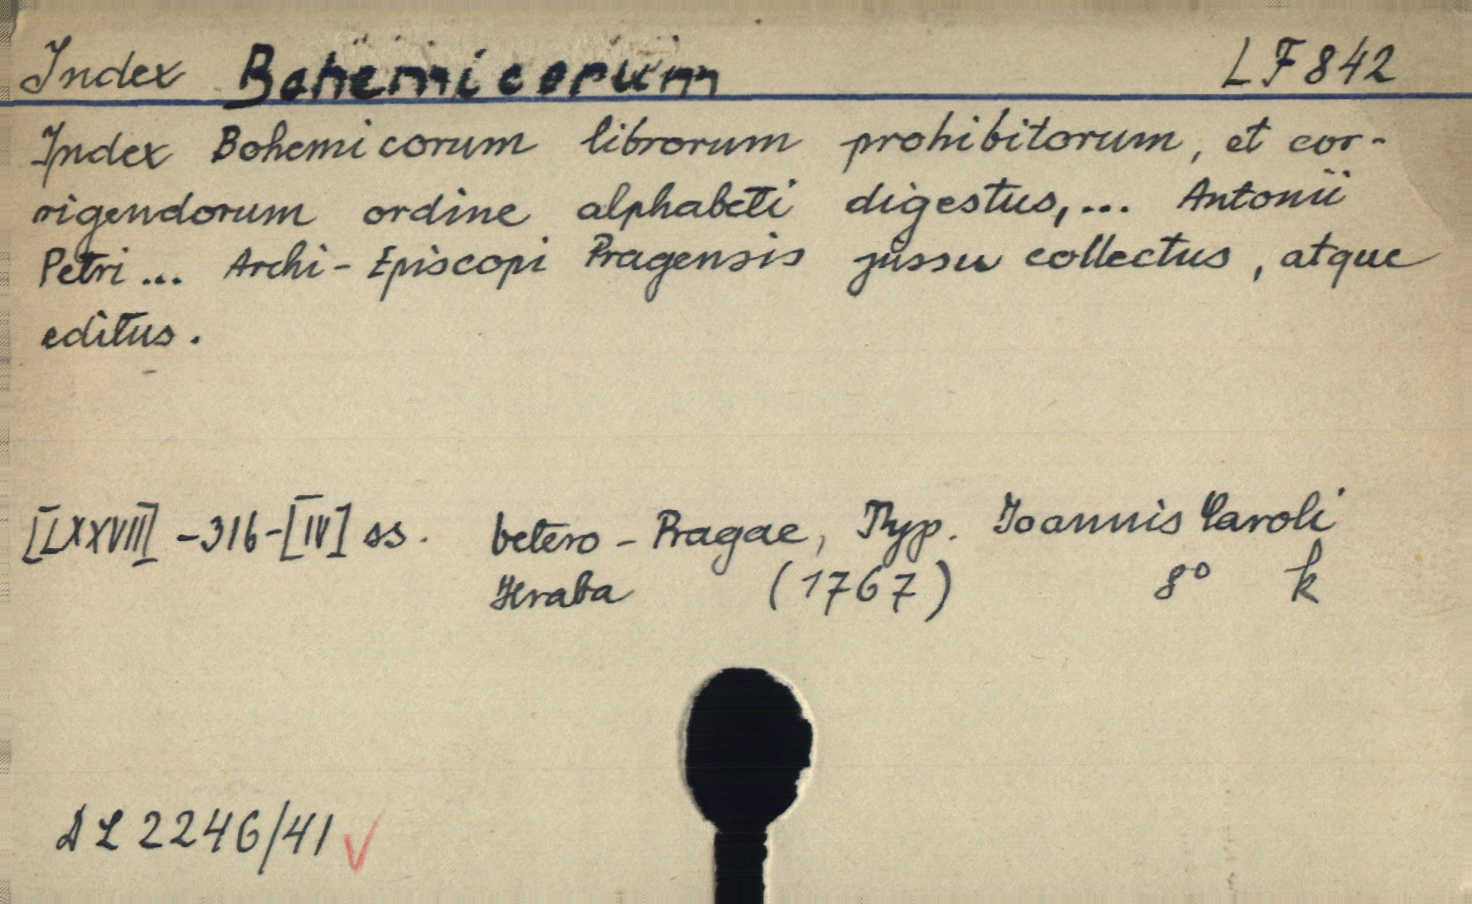 Index Bohemicorum LF 842
Index Bohemicorum librorum prohibitorum, et cor-
rigendorum ordine alphabeti digestus,... Antonii
Petri... Archi-Episcopi Pragensis jussu collectus, atque
editus.
[LXXVII] -316-[IV] ss. vetero-Pragae, Typ. Joannis Caroli
Hraba (1767) 8° k
DL 2246/41